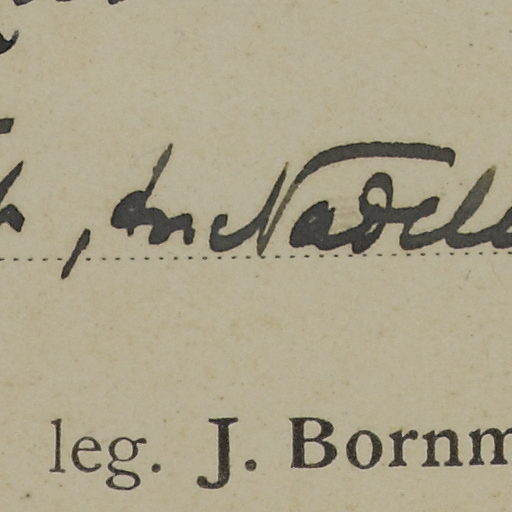 , in Nadel
leg. J. Bornm